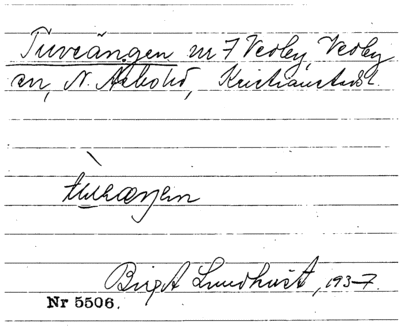 Tuveängen nr 7 Vedby, Vedby
sn, N. Åsbo hd, Kristianstads l.
tuvæŋen
Birgit Lundkvist, 1937.
Nr 5506.